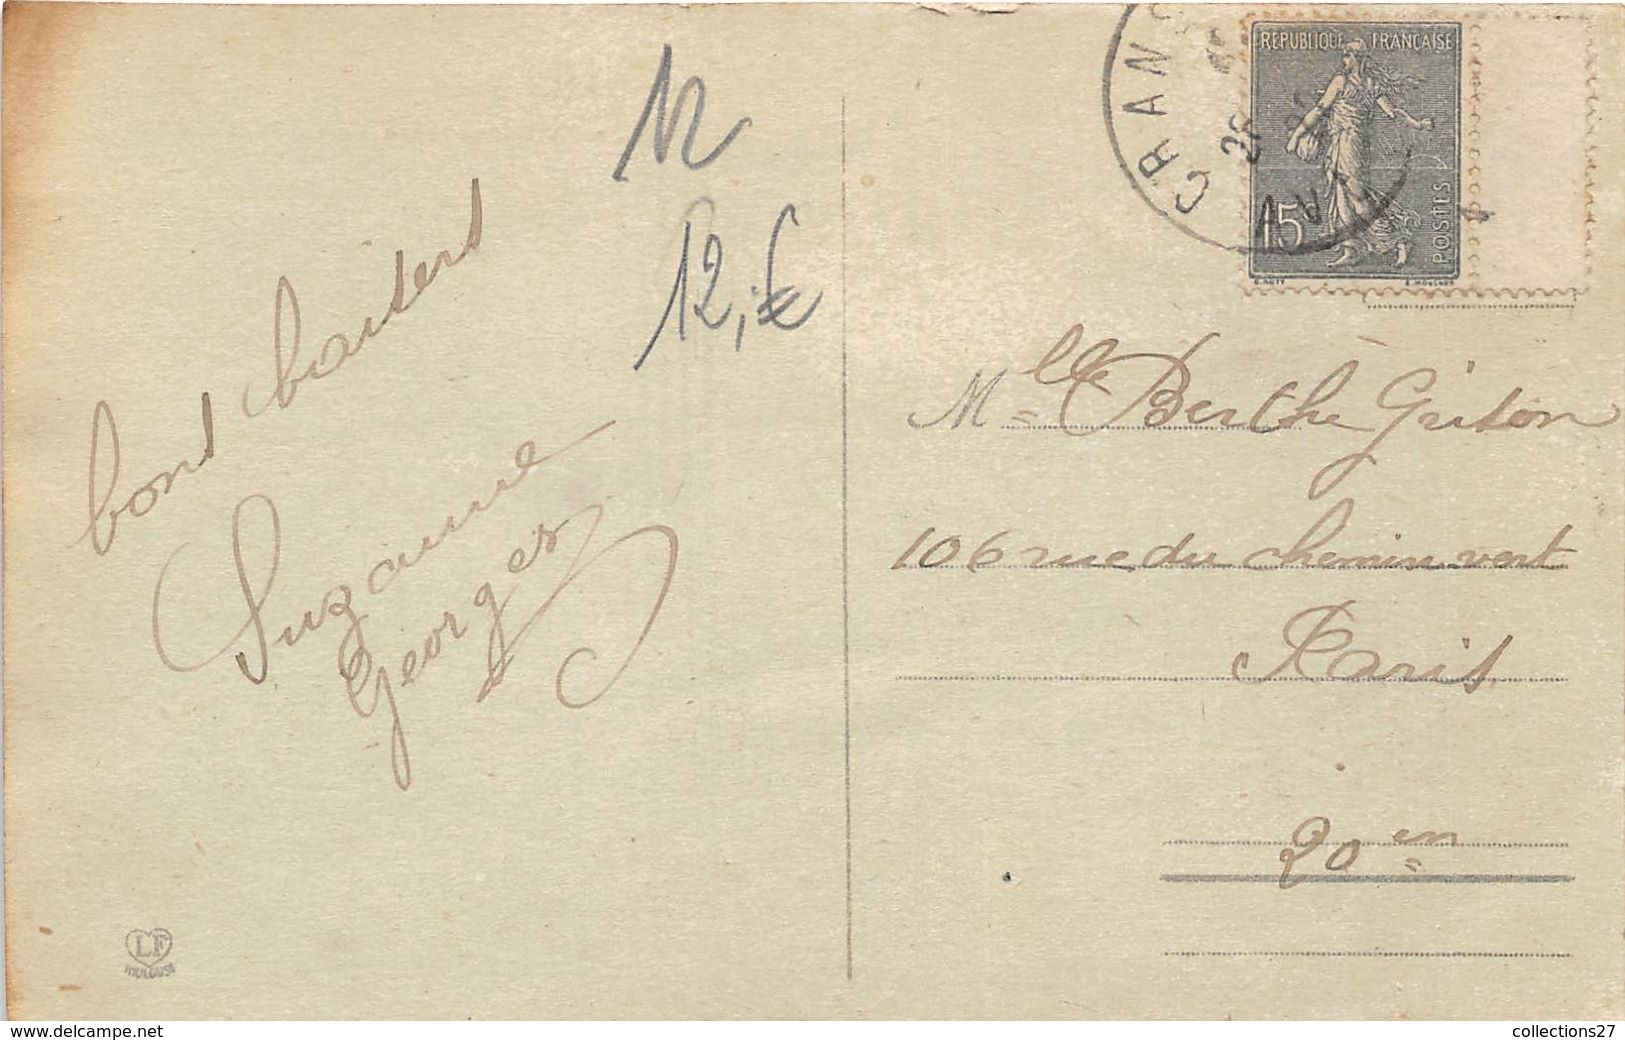 12
12,€
bons baisers
Suzanne
Georges
LF
TOULOUSE
CRAN
REPUBLIQUE FRANCAISE
15
POSTES
Mlle Berthe Griton
106 rue du chemin vert
Paris
20 em
www.delcampe.net
collections27